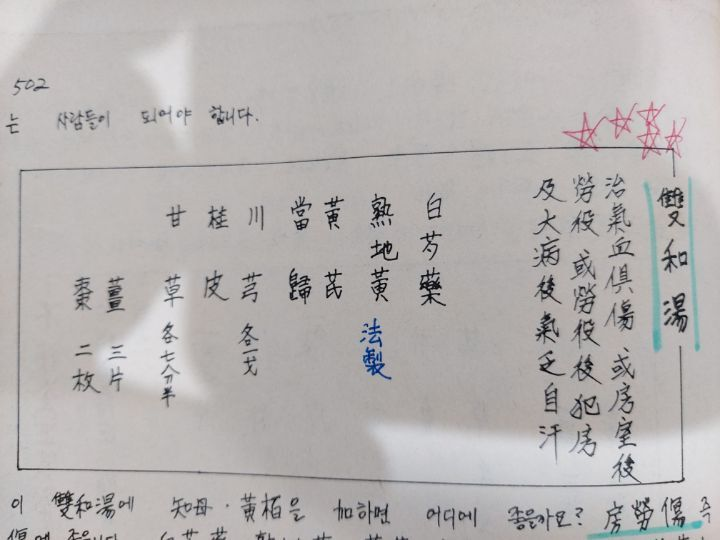 502
는 사람들이 되어야 합니다.
雙和湯
治氣血俱傷 或房室後
勞役 或勞役後犯房
及大病後氣乏自汗
白芍藥
熟地黃 法製
黃芪
當歸
川芎 各一戈
桂皮
甘草 各七分半
薑 三片
棗 二枚
이 雙和湯에 知母·黃栢을 加하면 어디에 좋을까요? 房勞傷 즉
傷에 좋습니다